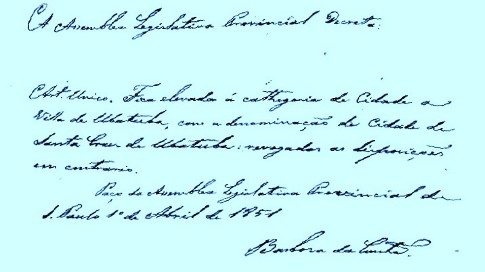 A Assemblea Legislativa Provincial Decreta:
Art. Unico. Fica elevada á cathegoria de Cidade a
Villa de Ubatuba, com a denominação de Cidade de
Santa Cruz de Ubatuba: revogadas as disposições
em contrario.
Paço da Assemblea Legislativa Provincial de
S. Paulo 1º de Abril de 1851
Barbosa da Cunha.